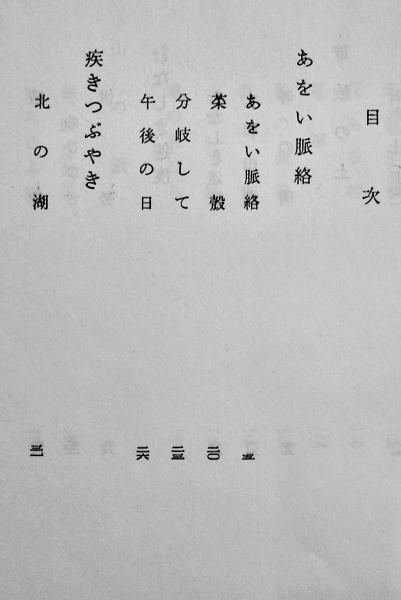 目次
あをい脈絡
あをい脈絡 一五
菜殻 二〇
分岐して 二三
午後の日 二六
疾きつぶやき
北の湖 三一